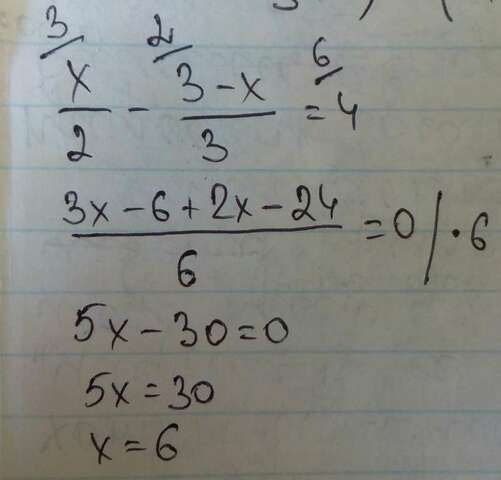 3/ 2/ 6/
x/2 - (3-x)/3 = 4
(3x-6+2x-24)/6 = 0 /·6
5x-30=0
5x=30
x=6